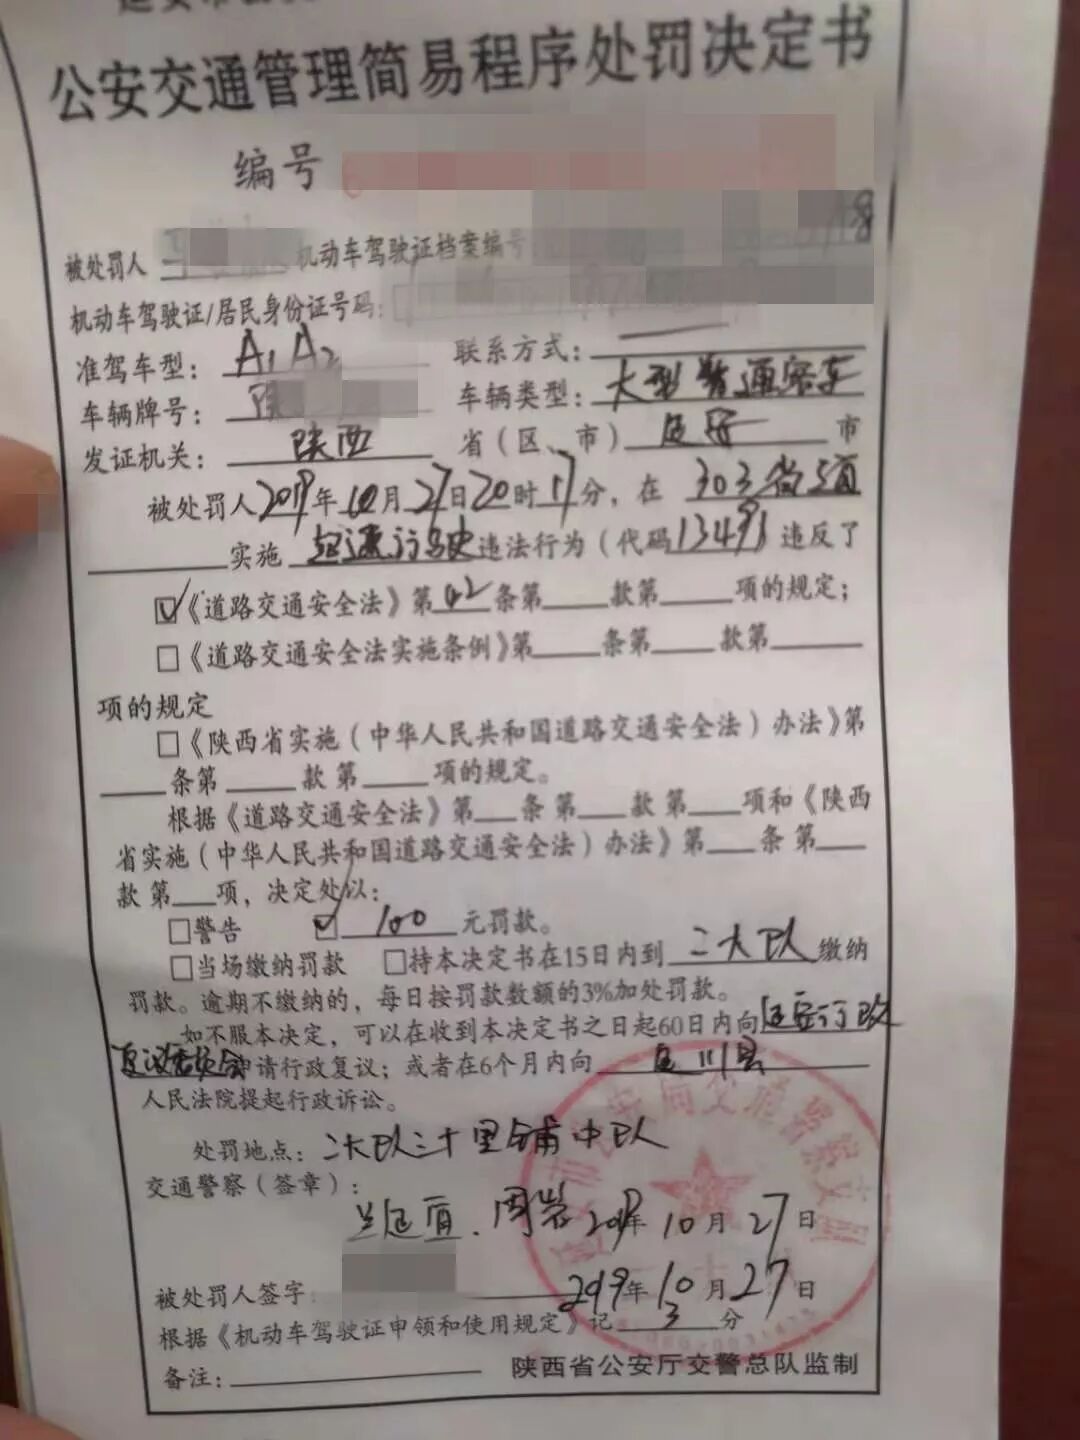 公安交通管理简易程序处罚决定书
编号
被处罚人 机动车驾驶证档案编号
机动车驾驶证/居民身份证号码:
准驾车型: A1A2 联系方式:
车辆牌号: 陕 车辆类型: 大型普通客车
发证机关: 陕西 省(区、市) 延安 市
被处罚人2019年10月27日20时17分,在 303省道
实施 超速行驶 违法行为(代码13491 违反了
☑《道路交通安全法》第42条第 款第 项的规定;
□《道路交通安全法实施条例》第 条第 款第
项的规定
□《陕西省实施(中华人民共和国道路交通安全法)办法》第
条第 款 第 项的规定。
根据《道路交通安全法》第 条 第 款 第 项和《陕西
省实施(中华人民共和国道路交通安全法)办法》第 条 第
款 第 项,决定处以:
□警告 ☑ 100 元罚款。
□当场缴纳罚款 □持本决定书在15日内到 二大队 缴纳
罚款。逾期不缴纳的,每日按罚款数额的3%加处罚款。
如不服本决定,可以在收到本决定书之日起60日内向延安行政
复议委员会申请行政复议;或者在6个月内向 延川县
人民法院提起行政诉讼。
处罚地点:二大队二十里铺中队
交通警察(签章):
兰延 . 周岩 2019年 10 月 27 日
被处罚人签字: 2019年 10 月 27 日
根据《机动车驾驶证申领和使用规定》记 3 分
备注: 陕西省公安厅交警总队监制